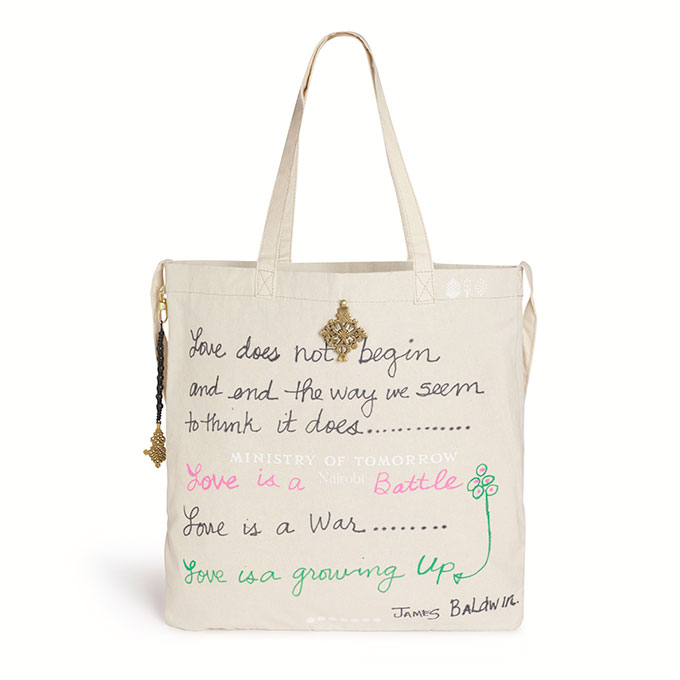 Love does not begin
and end the way we seem
to think it does.............
MINISTRY OF TOMORROW
Love is a Battle
Nairobi
Love is a War........
Love is a growing Up
JAMES BALDWIN.